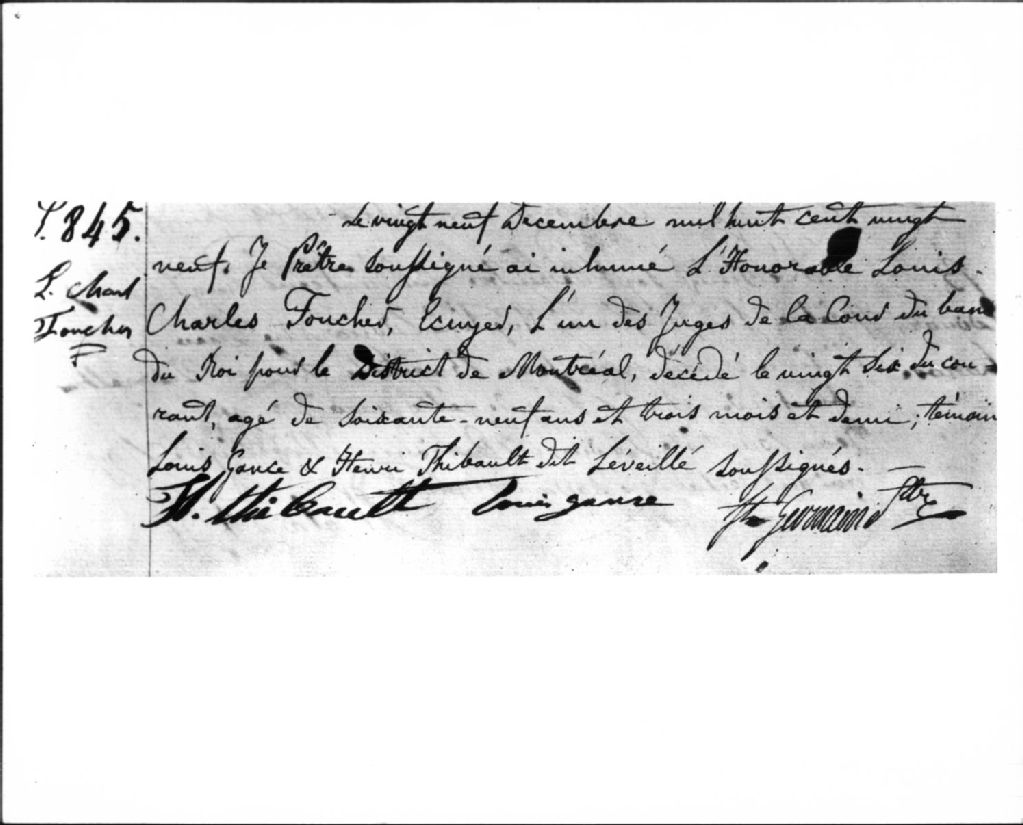 S.845.
L. Charl
Foucher
Le vingt neuf Decembre mil huit cent vingt
neuf, Je Prêtre soussigné ai inhumé L'Honorable Louis-
Charles Foucher, Ecuyer, L'un des Juges de la Cour du banc
du Roi pour le District de Montréal, décédé le vingt six du cou
rant, agé de soixante-neuf ans et trois mois et demi; témoin
Louis Gauce & Henri Thibault dit Léveillé soussignés.
H. thibault Louis gause St Germain Ptre